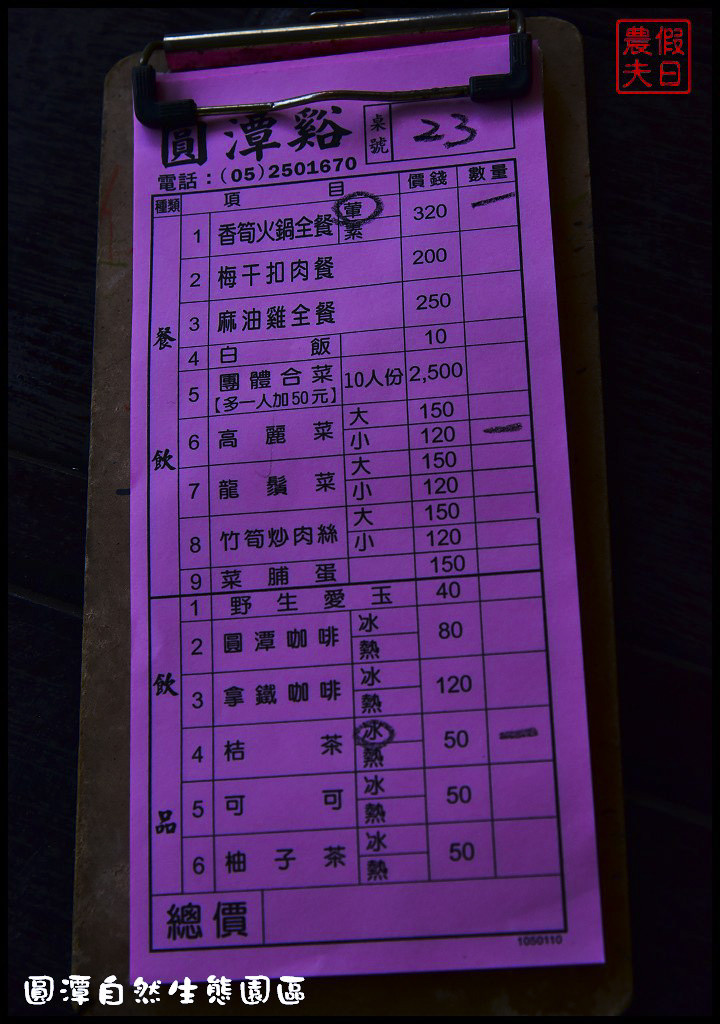 假日
農夫
圓潭谿 桌號 23
電話：(05)2501670
種類 項目 價錢 數量
餐飲
1 香筍火鍋全餐 葷 素 320 一
2 梅干扣肉餐 200
3 麻油雞全餐 250
4 白飯 10
5 團體合菜 10人份 2,500
【多一人加50元】
6 高麗菜 大 150
小 120 一
7 龍鬚菜 大 150
小 120
8 竹筍炒肉絲 大 150
小 120
9 菜脯蛋 150
飲品
1 野生愛玉 40
2 圓潭咖啡 冰 熱 80
3 拿鐵咖啡 冰 熱 120
4 桔茶 冰 熱 50 一
5 可可 冰 熱 50
6 柚子茶 冰 熱 50
總價
1050110
圓潭自然生態園區